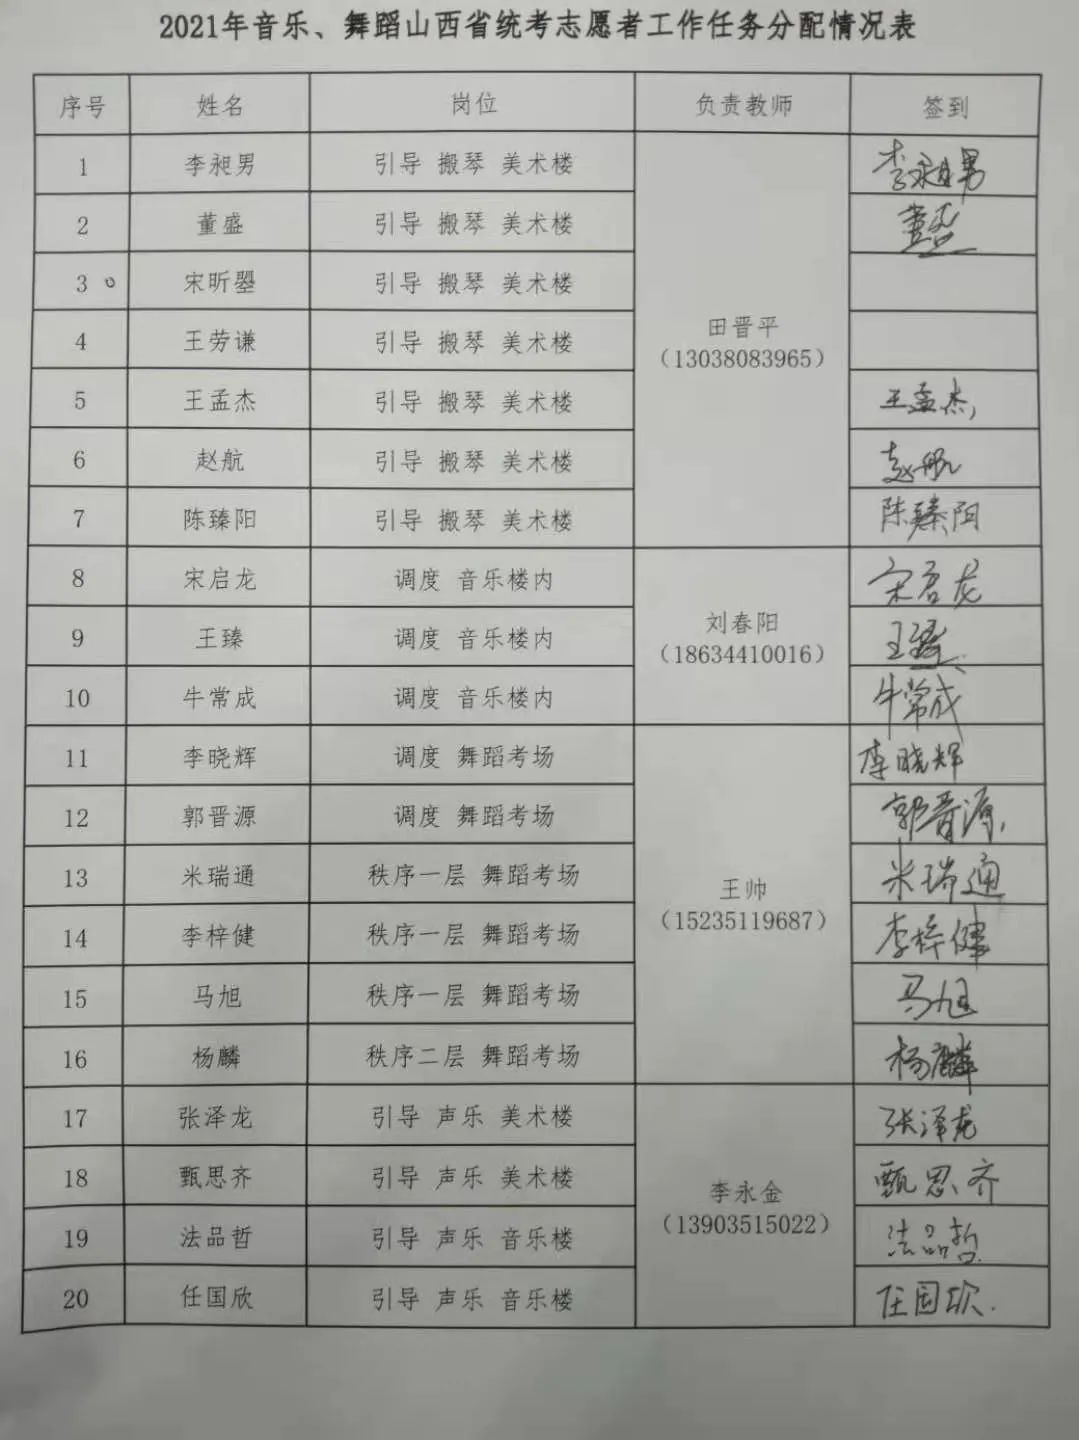 2021年音乐、舞蹈山西省统考志愿者工作任务分配情况表
序号 姓名 岗位 负责教师 签到
1 李昶男 引导 搬琴 美术楼 李昶男
2 董盛 引导 搬琴 美术楼 董盛
3 宋昕曌 引导 搬琴 美术楼
田晋平
4 王劳谦 引导 搬琴 美术楼
(13038083965)
5 王孟杰 引导 搬琴 美术楼 王孟杰
6 赵航 引导 搬琴 美术楼 赵航
7 陈臻阳 引导 搬琴 美术楼 陈臻阳
8 宋启龙 调度 音乐楼内 宋启龙
刘春阳
9 王臻 调度 音乐楼内 王臻
(18634410016)
10 牛常成 调度 音乐楼内 牛常成
11 李晓辉 调度 舞蹈考场 李晓辉
12 郭晋源 调度 舞蹈考场 郭晋源
13 米瑞通 秩序一层 舞蹈考场 王帅 米瑞通
(15235119687)
14 李梓健 秩序一层 舞蹈考场 李梓健
15 马旭 秩序一层 舞蹈考场 马旭
16 杨麟 秩序二层 舞蹈考场 杨麟
17 张泽龙 引导 声乐 美术楼 张泽龙
18 甄思齐 引导 声乐 美术楼 李永金 甄思齐
(13903515022)
19 法品哲 引导 声乐 音乐楼 法品哲
20 任国欣 引导 声乐 音乐楼 任国欣